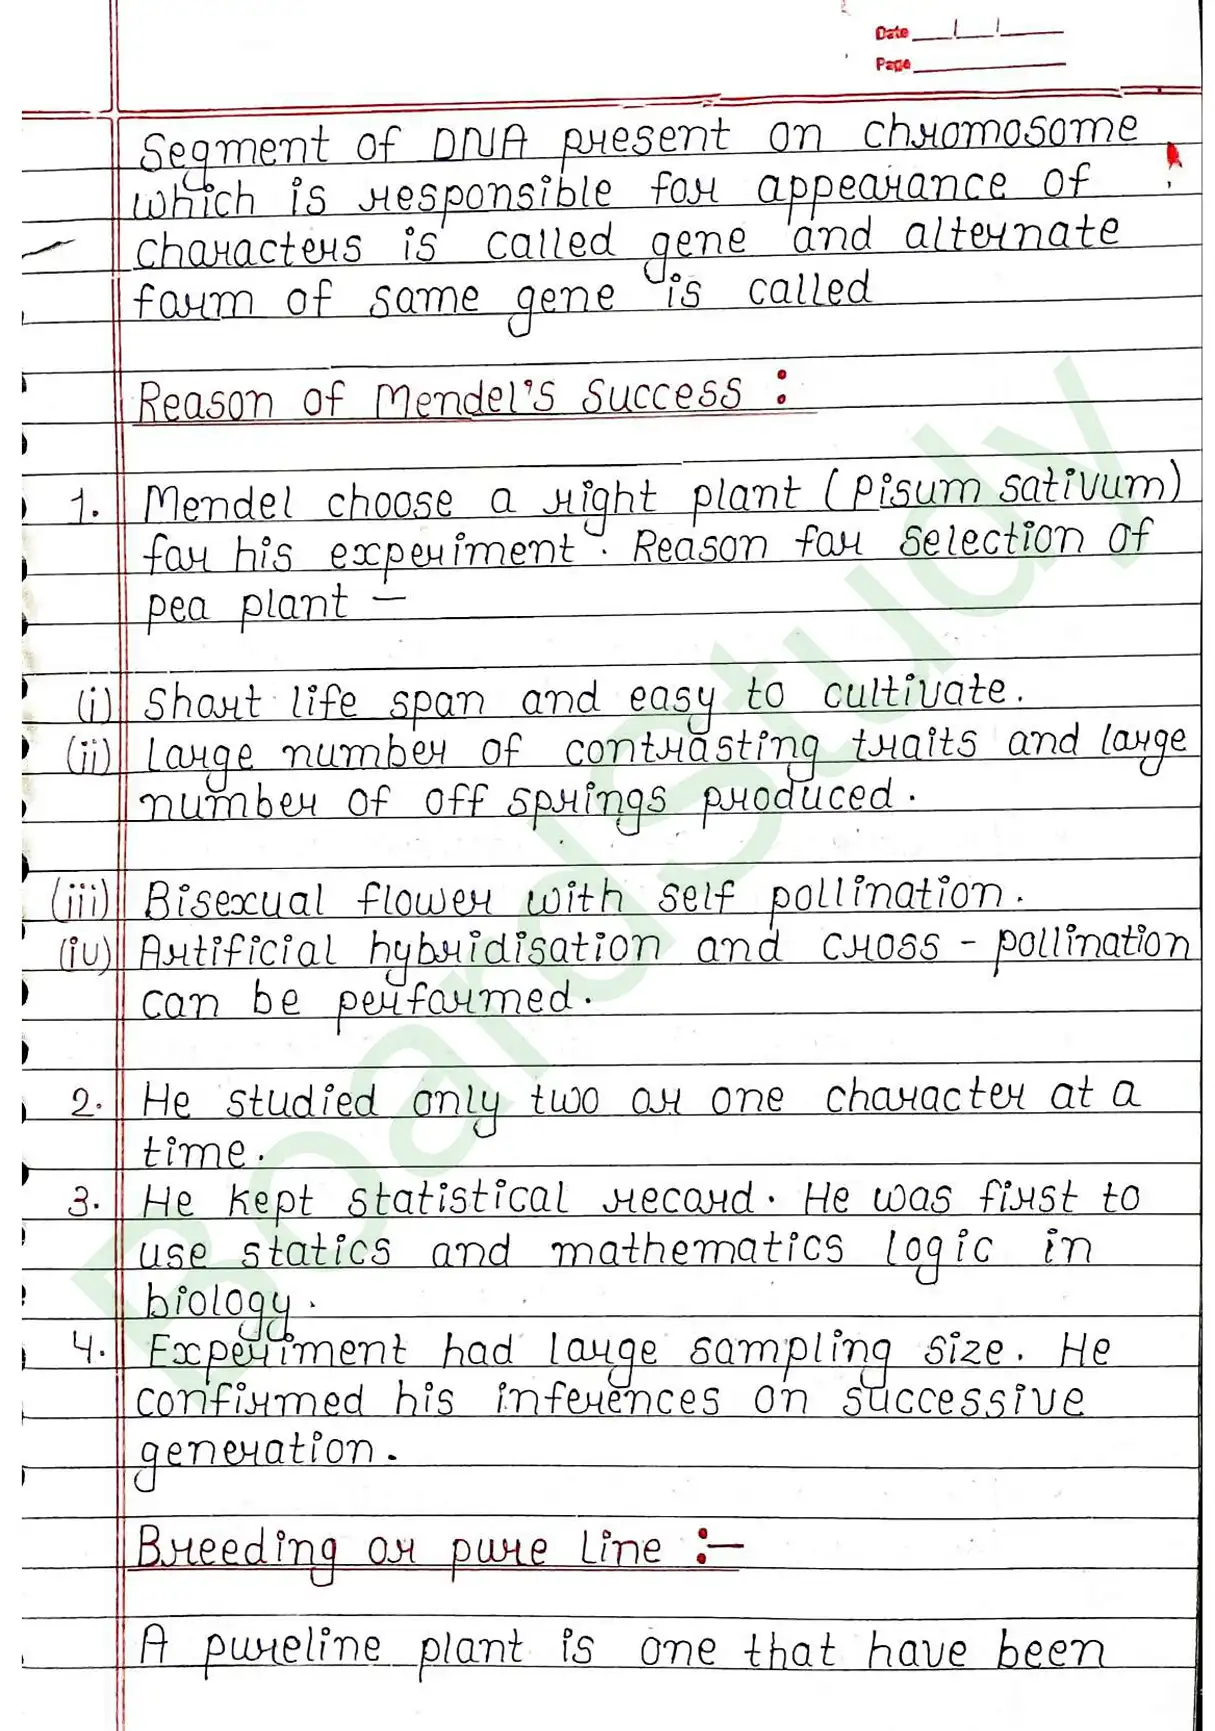 Date
Page
Segment of DNA present on chromosome
which is responsible for appearance of
characters is called gene and alternate
form of same gene is called
Reason of Mendel's Success :
1. Mendel choose a right plant (Pisum sativum)
for his experiment. Reason for Selection of
pea plant –
(i) Short life span and easy to cultivate.
(ii) Large number of contrasting traits and large
number of off springs produced.
(iii) Bisexual flower with self pollination.
(iv) Artificial hybridisation and cross - pollination
can be performed.
2. He studied only two or one character at a
time.
3. He kept statistical record. He was first to
use statics and mathematics logic in
biology.
4. Experiment had large sampling size. He
confirmed his inferences on successive
generation.
Breeding or pure line :–
A pureline plant is one that have been
BoardStudy